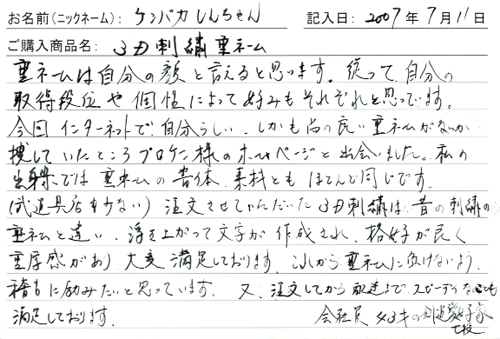 お名前(ニックネーム): ケンバカしんちゃん 記入日: 2007年7月11日
ご購入商品名: 3D刺繍垂ネーム
垂ネームは自分の顔と言えると思います。従って、自分の
取得段位や個性によって好みもそれぞれと思っています。
今回インターネットで、自分らしい、しかも品の良い垂ネームがないか
捜していたところブロケン様のホームページと出会いました。私の
出身県では垂ネームの書体、素材ともほとんど同じです。
(武道具店も少ない) 注文させていただいた3D刺繍は、昔の刺繍の
垂ネームと違い、浮き上がって文字が作成され、格好が良く
重厚感があり、大変満足しております。これから垂ネームに負けないよう、
稽古に励みたいと思っています。又、注文してから配送までスピーディなことも
満足しております。 会社員 43才の剣道愛好家
七段